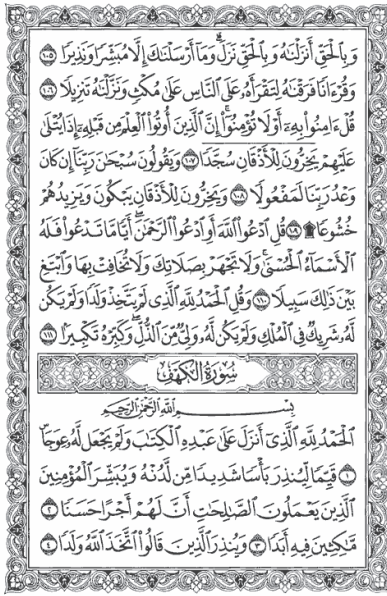 وَبِالْحَقِّ أَنزَلْنَاهُ وَبِالْحَقِّ نَزَلَ ۗ وَمَا أَرْسَلْنَاكَ إِلَّا مُبَشِّرًا وَنَذِيرًا ١٠٥
وَقُرْءَانًا فَرَقْنَاهُ لِتَقْرَأَهُ عَلَى النَّاسِ عَلَى مُكْثٍ وَنَزَّلْنَاهُ تَنزِيلًا ١٠٦
قُلْ ءَامِنُوا بِهِ أَوْ لَا تُؤْمِنُوا ۚ إِنَّ الَّذِينَ أُوتُوا الْعِلْمَ مِن قَبْلِهِ إِذَا يُتْلَى
عَلَيْهِمْ يَخِرُّونَ لِلْأَذْقَانِ سُجَّدًا ١٠٧ وَيَقُولُونَ سُبْحَانَ رَبِّنَا إِن كَانَ
وَعْدُ رَبِّنَا لَمَفْعُولًا ١٠٨ وَيَخِرُّونَ لِلْأَذْقَانِ يَبْكُونَ وَيَزِيدُهُمْ
خُشُوعًا ۩ ١٠٩ قُلِ ادْعُوا اللَّهَ أَوِ ادْعُوا الرَّحْمَٰنَ ۖ أَيًّا مَّا تَدْعُوا فَلَهُ
الْأَسْمَاءُ الْحُسْنَى ۚ وَلَا تَجْهَرْ بِصَلَاتِكَ وَلَا تُخَافِتْ بِهَا وَابْتَغِ
بَيْنَ ذَٰلِكَ سَبِيلًا ١١٠ وَقُلِ الْحَمْدُ لِلَّهِ الَّذِي لَمْ يَتَّخِذْ وَلَدًا وَلَمْ يَكُن
لَّهُ شَرِيكٌ فِي الْمُلْكِ وَلَمْ يَكُن لَّهُ وَلِيٌّ مِّنَ الذُّلِّ ۖ وَكَبِّرْهُ تَكْبِيرًا ١١١
سُورَةُ الْكَهْفِ
بِسْمِ اللَّهِ الرَّحْمَٰنِ الرَّحِيمِ
الْحَمْدُ لِلَّهِ الَّذِي أَنزَلَ عَلَى عَبْدِهِ الْكِتَابَ وَلَمْ يَجْعَل لَّهُ عِوَجَا
١ قَيِّمًا لِّيُنذِرَ بَأْسًا شَدِيدًا مِّن لَّدُنْهُ وَيُبَشِّرَ الْمُؤْمِنِينَ
الَّذِينَ يَعْمَلُونَ الصَّالِحَاتِ أَنَّ لَهُمْ أَجْرًا حَسَنًا ٢
مَّاكِثِينَ فِيهِ أَبَدًا ٣ وَيُنذِرَ الَّذِينَ قَالُوا اتَّخَذَ اللَّهُ وَلَدًا ٤